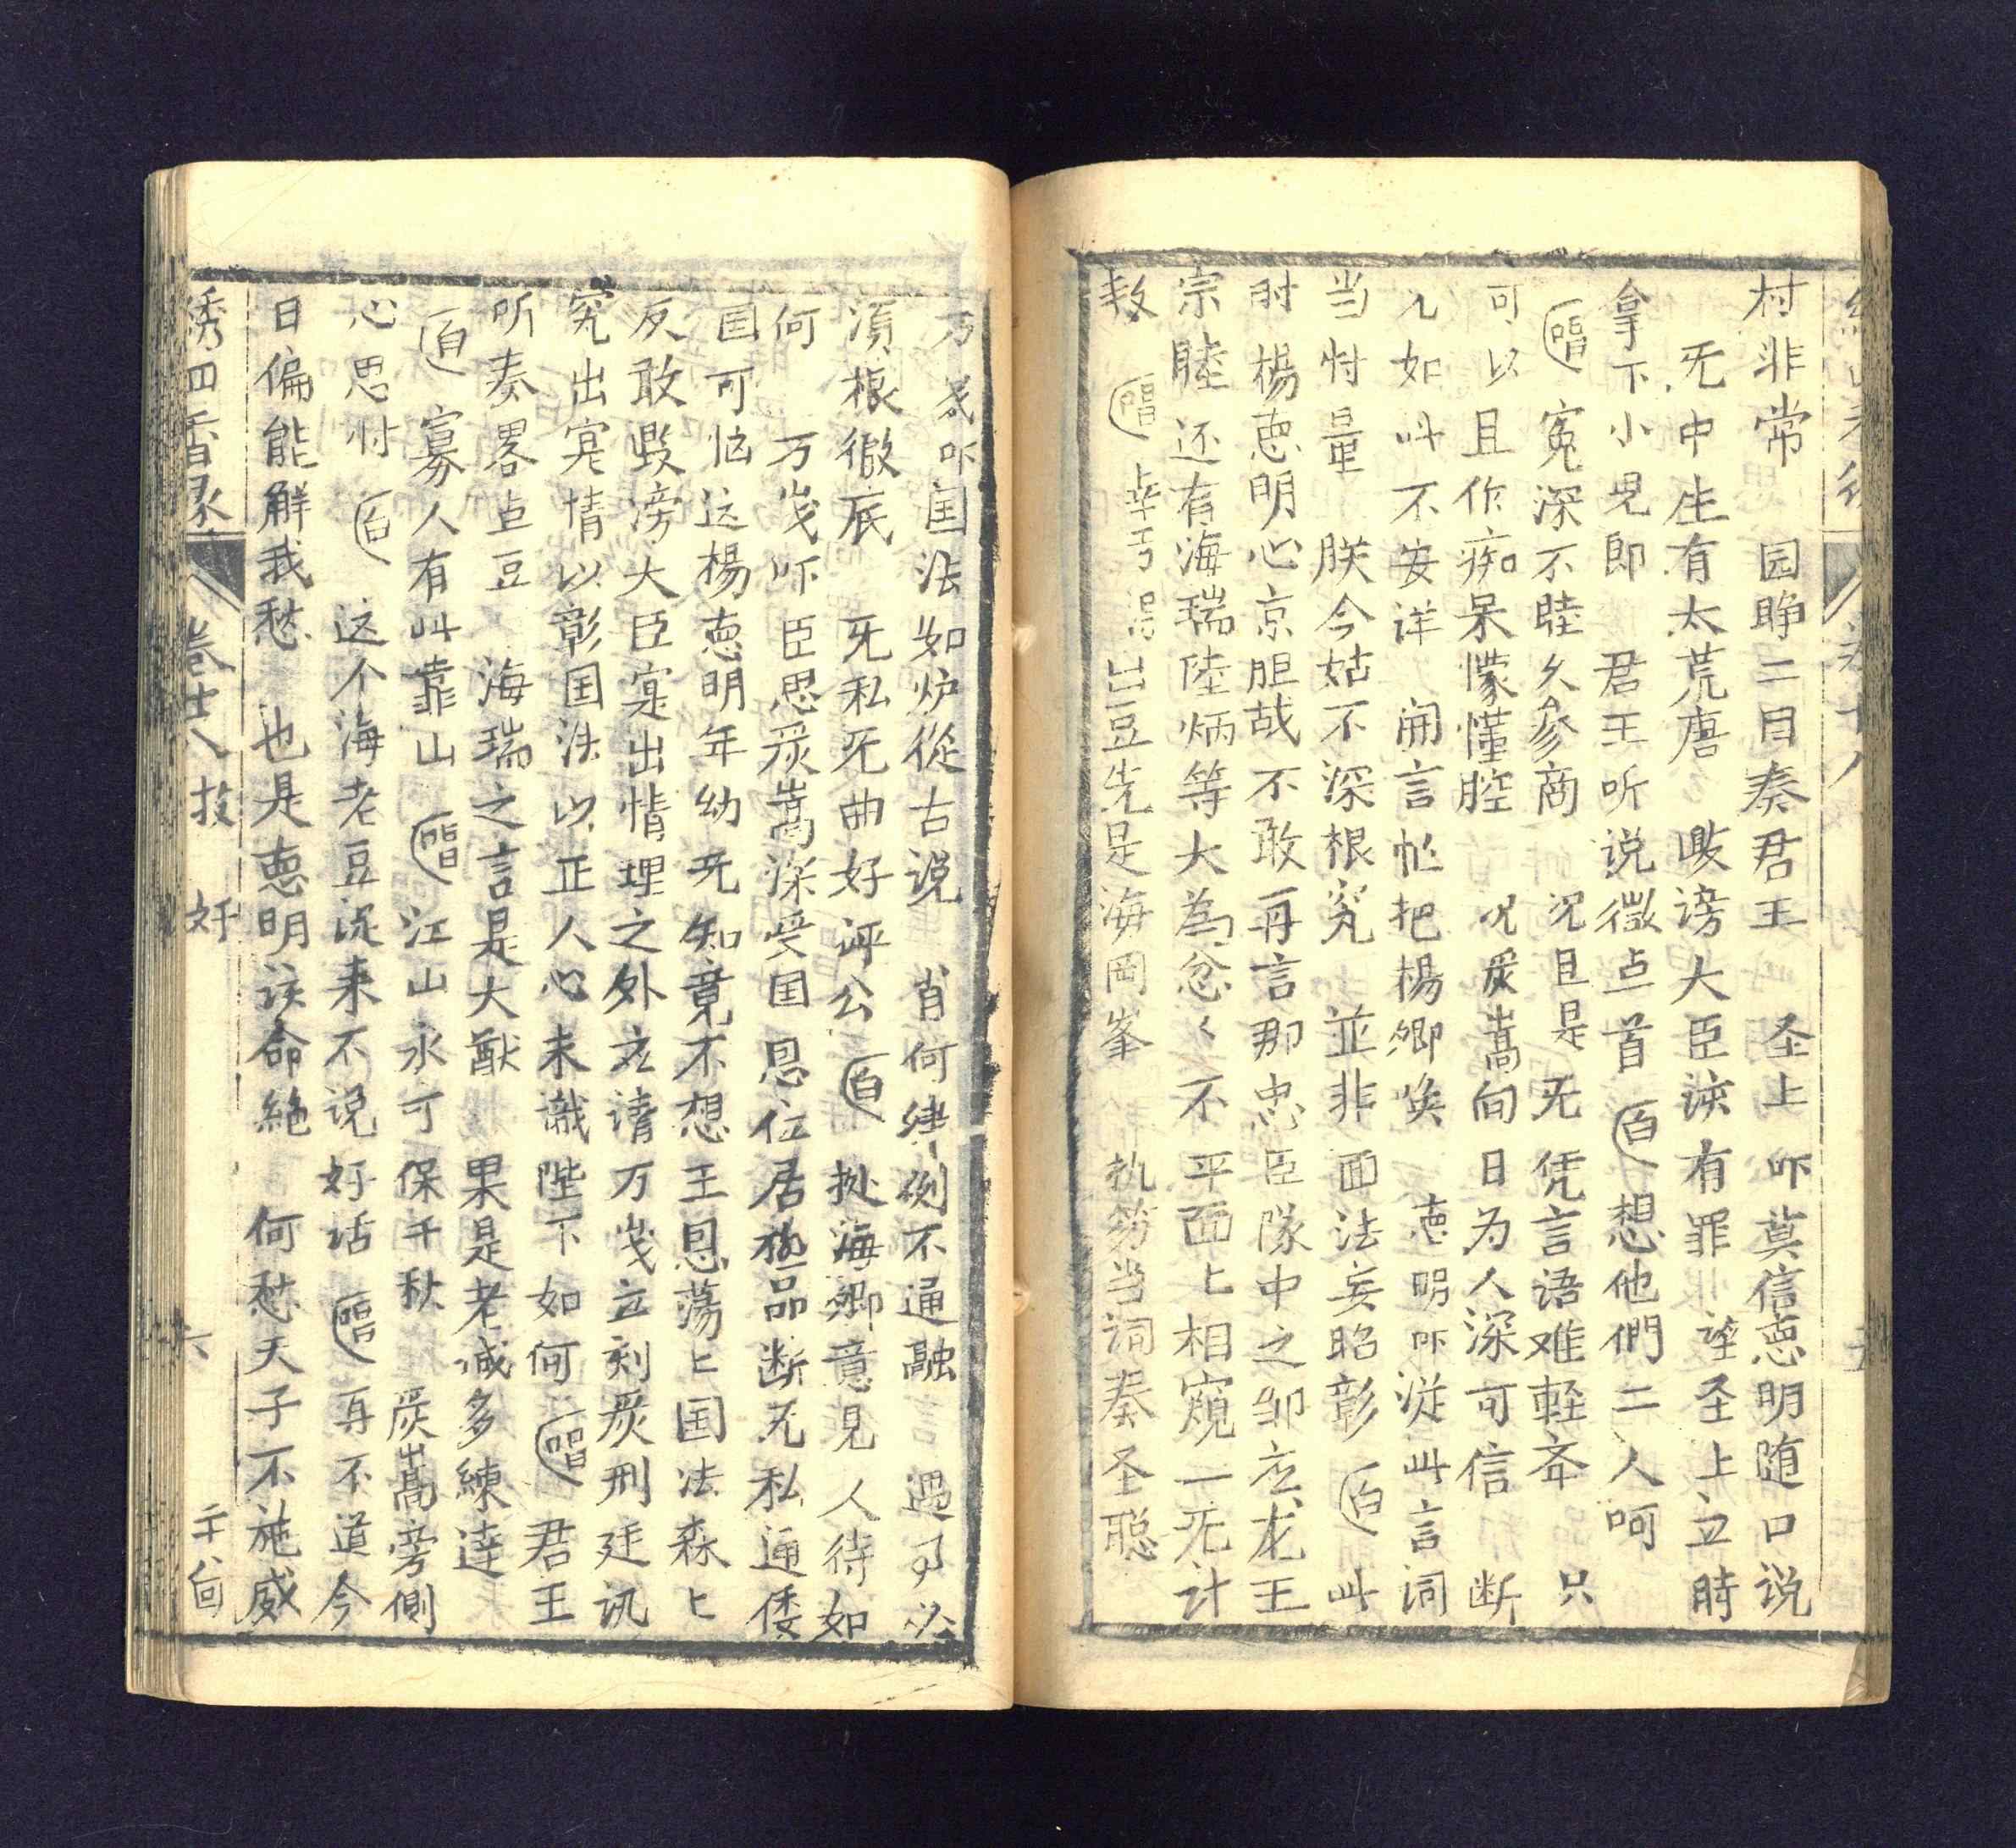 村非常　园睁二目奏君王　圣上吓莫信悳明随口说
无中生有太荒唐　毁谤大臣該有罪　望圣上立時
拿下小児郎　君王听说微点首　白　想他們二人呵
唱　寃深不睦久參商　况且是无凭言语难軽弃　只
可以且作痴呆懞懂腔　况炭嵩向日为人深可信　断
几如此不安详　開言忙把楊卿唤　悳明吓従此言词
当忖量　朕今姑不深根究　並非面法妄昭彰　白　此
时楊悳明心京胆战不敢再言那忠臣隊中之邹应龙王
宗睦还有海瑞陸炳等大為忿〻不平面上相窺一无计
救　唱　出豆先是海岡峯　执笏当詞奏圣聪
万岁吓囯法如炉從古说　肖何律例不通融　遇事必
須根徹底　无私无曲好评公　白　拠海卿意見人待如
何　万岁吓臣思炭嵩深受囯恩位居極品断无私通倭
囯可恼这楊悳明年幼无知竟不想王恩荡上囯法森上
反敢毁滂大臣寔出情埋之外应请万岁立刻炭刑廷讯
究出寔情以彰囯法以正人心未識陛下如何　唱　君王
听奏畧点豆　海瑞之言是大猷　果是老诚多練達
白　寡人有此靠山　唱　江山永可保千秋　炭嵩旁側
心思忖　白　这个海老豆従来不说好话　唱　再不道今
日偏能解我愁　也是悳明该命絶　何愁天子不施威
绣四香缘　卷十八　技奸　六